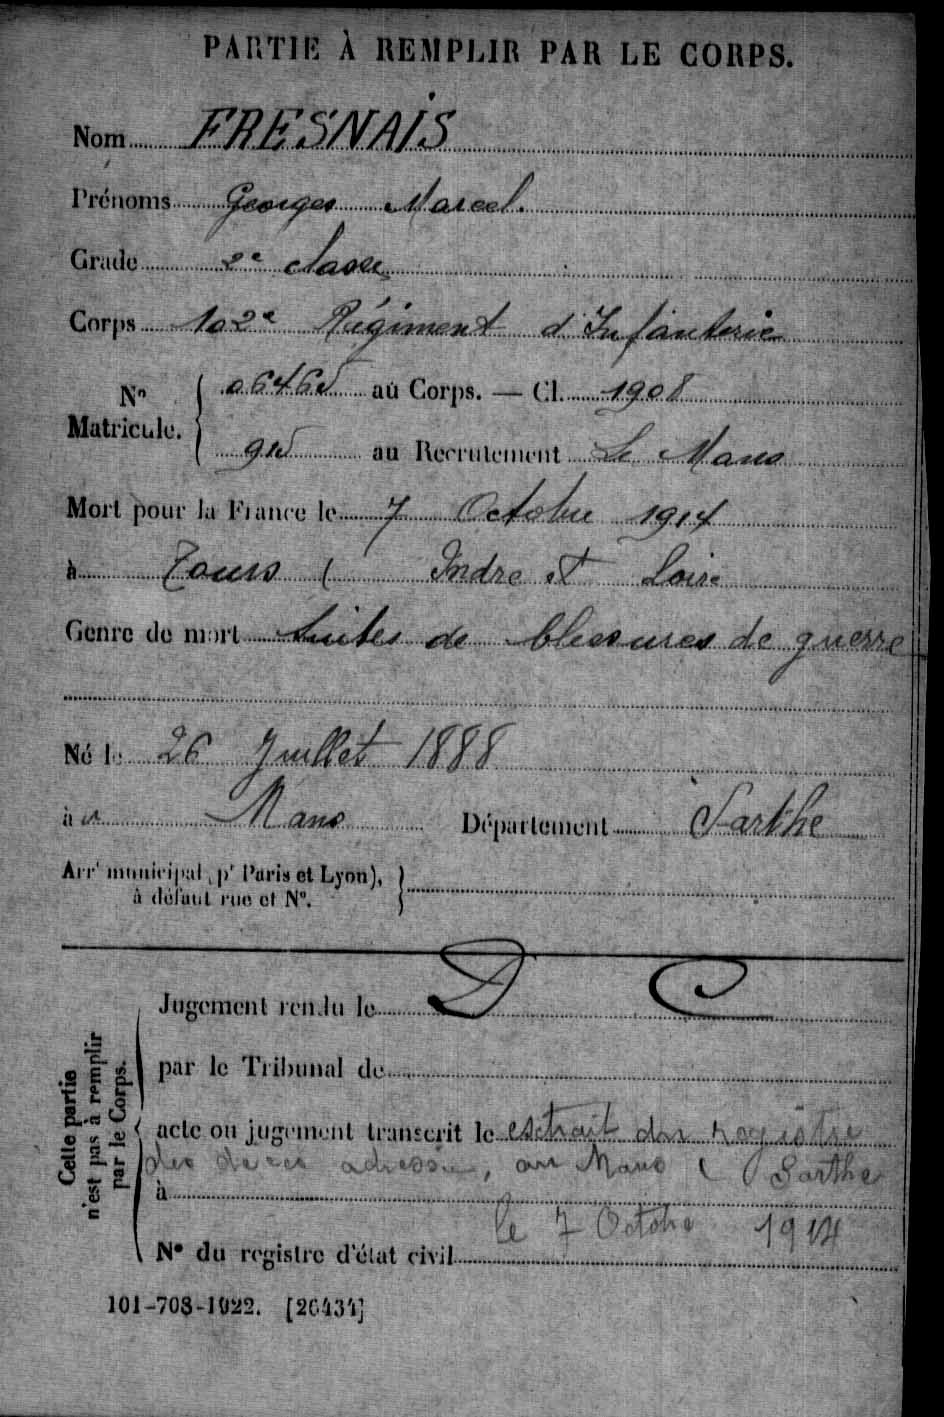 PARTIE À REMPLIR PAR LE CORPS.
Nom FRESNAIS
Prénoms Georges Marcel.
Grade 2e classe
Corps 102e Régiment d'Infanterie
No Matricule. { 06465 au Corps. — Cl. 1908
915 au Recrutement Le Mans
Mort pour la France le 7 Octobre 1914
à Tours ( Indre et Loire
Genre de mort Suites de blessures de guerre
Né le 26 Juillet 1888
à Mans Département Sarthe
Arrt municipal (pr Paris et Lyon), }
à défaut rue et No.
Cette partie n'est pas à remplir par le Corps.
Jugement rendu le D C
par le Tribunal de
acte ou jugement transcrit le extrait du registre
des deces adressé, au Mans ( Sarthe
à
le 7 Octobre 1914
No du registre d'état civil
101-708-1922. [26434]